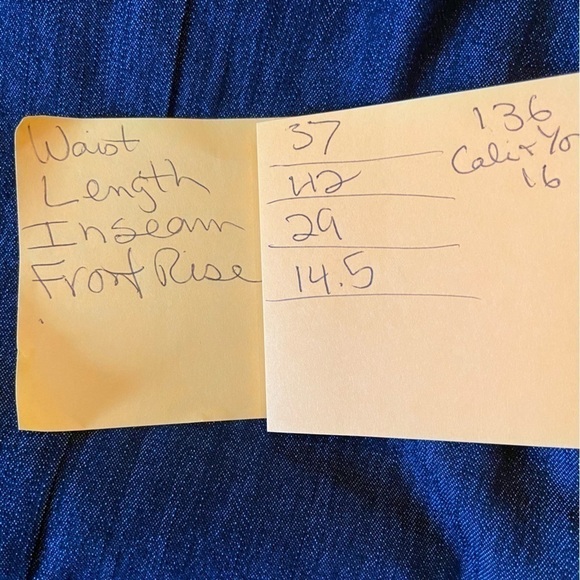 Waist 37
Length 42
Inseam 29
Front Rise 14.5
136
16